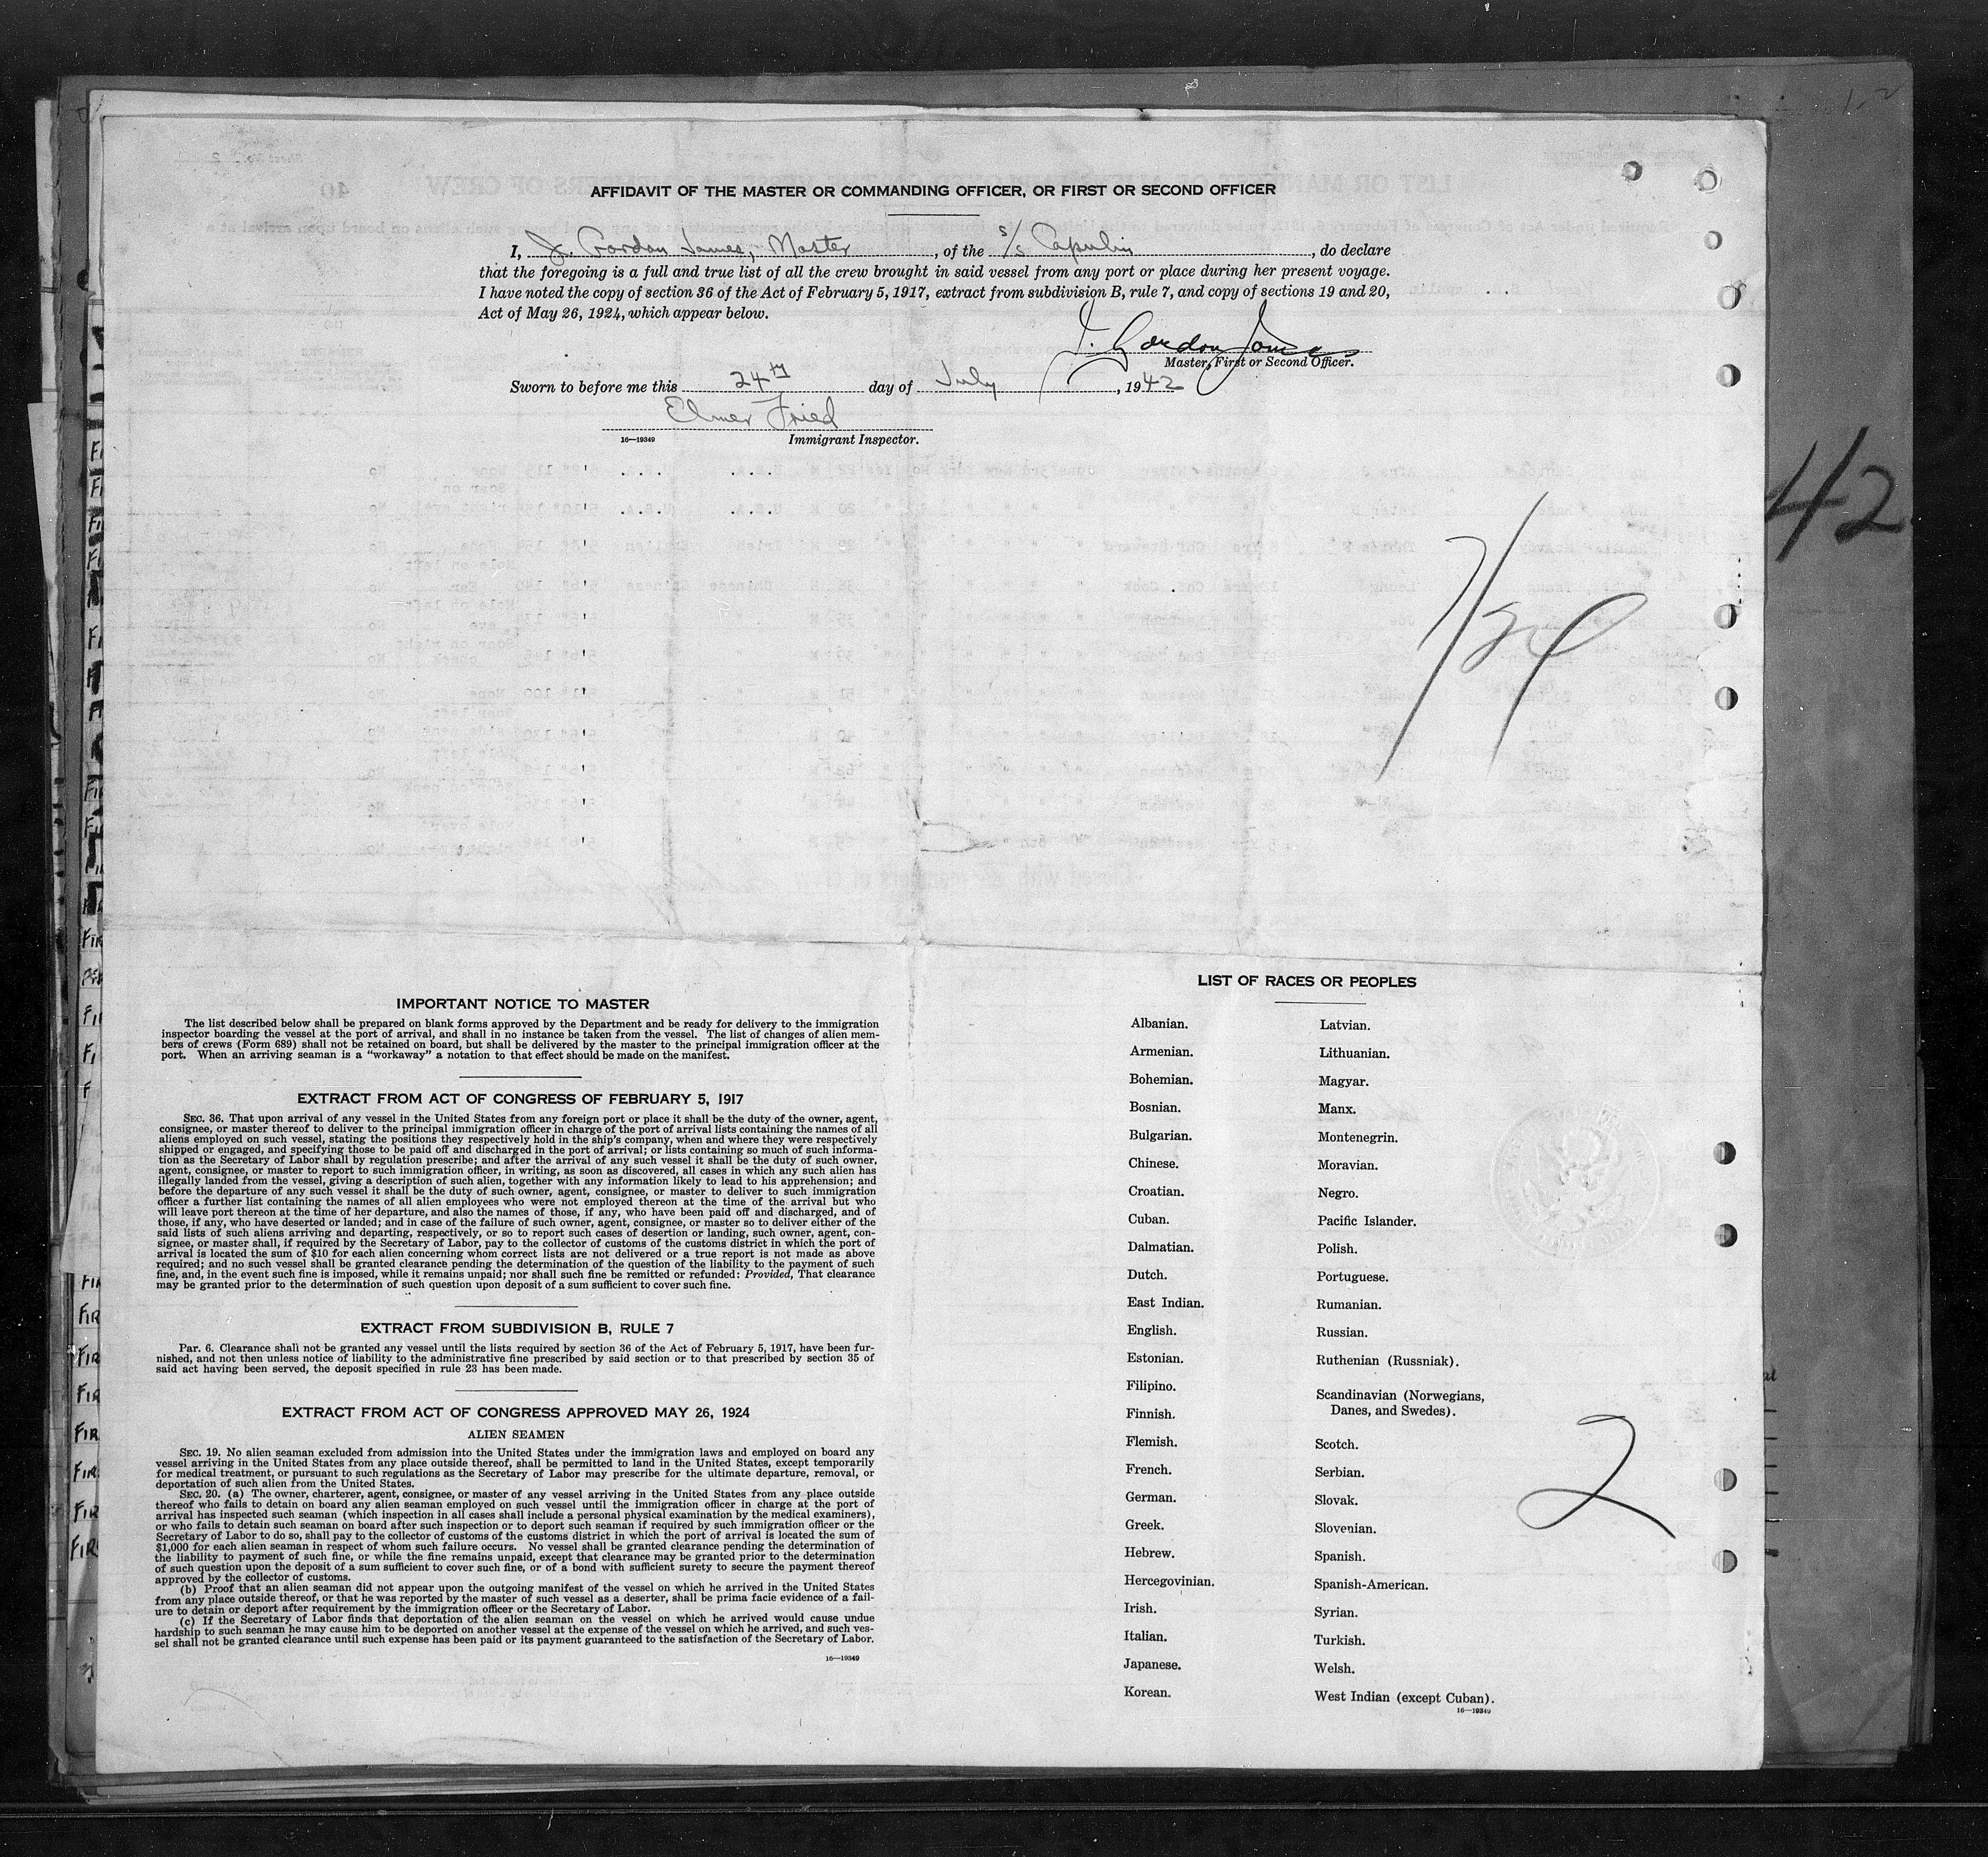 AFFIDAVIT OF THE MASTER OR COMMANDING OFFICER, OR FIRST OR SECOND OFFICER
I, J. Gordon James, Master, of the S/S Capulin, do declare
that the foregoing is a full and true list of all the crew brought in said vessel from any port or place during her present voyage.
I have noted the copy of section 36 of the Act of February 5, 1917, extract from subdivision B, rule 7, and copy of sections 19 and 20,
Act of May 26, 1924, which appear below.
J. Gordon James
Master, First or Second Officer.
Sworn to before me this 24th day of July, 1942
Elmer Fried
16—19349 Immigrant Inspector.
42
7/24
IMPORTANT NOTICE TO MASTER
The list described below shall be prepared on blank forms approved by the Department and be ready for delivery to the immigration
inspector boarding the vessel at the port of arrival, and shall in no instance be taken from the vessel. The list of changes of alien mem-
bers of crews (Form 689) shall not be retained on board, but shall be delivered by the master to the principal immigration officer at the
port. When an arriving seaman is a "workaway" a notation to that effect should be made on the manifest.
EXTRACT FROM ACT OF CONGRESS OF FEBRUARY 5, 1917
SEC. 36. That upon arrival of any vessel in the United States from any foreign port or place it shall be the duty of the owner, agent,
consignee, or master thereof to deliver to the principal immigration officer in charge of the port of arrival lists containing the names of all
aliens employed on such vessel, stating the positions they respectively hold in the ship's company, when and where they were respectively
shipped or engaged, and specifying those to be paid off and discharged in the port of arrival; or lists containing so much of such informa-
tion as the Secretary of Labor shall by regulation prescribe; and after the arrival of any such vessel it shall be the duty of such owner,
agent, consignee, or master to report to such immigration officer, in writing, as soon as discovered, all cases in which any such alien has
illegally landed from the vessel, giving a description of such alien, together with any information likely to lead to his apprehension; and
before the departure of any such vessel it shall be the duty of such owner, agent, consignee, or master to deliver to such immigration
officer a further list containing the names of all alien employees who were not employed thereon at the time of the arrival but who
will leave port thereon at the time of her departure, and also the names of those, if any, who have been paid off and discharged, and of
those, if any, who have deserted or landed; and in case of the failure of such owner, agent, consignee, or master so to deliver either of the
said lists of such aliens arriving and departing, respectively, or so to report such cases of desertion or landing, such owner, agent, con-
signee, or master shall, if required by the Secretary of Labor, pay to the collector of customs of the customs district in which the port of
arrival is located the sum of $10 for each alien concerning whom correct lists are not delivered or a true report is not made as above
required; and no such vessel shall be granted clearance pending the determination of the question of the liability to the payment of such
fine, and, in the event such fine is imposed, while it remains unpaid; nor shall such fine be remitted or refunded: Provided, That clearance
may be granted prior to the determination of such question upon deposit of a sum sufficient to cover such fine.
EXTRACT FROM SUBDIVISION B, RULE 7
Par. 6. Clearance shall not be granted any vessel until the lists required by section 36 of the Act of February 5, 1917, have been fur-
nished, and not then unless notice of liability to the administrative fine prescribed by said section or to that prescribed by section 35 of
said act having been served, the deposit specified in rule 23 has been made.
EXTRACT FROM ACT OF CONGRESS APPROVED MAY 26, 1924
ALIEN SEAMEN
SEC. 19. No alien seaman excluded from admission into the United States under the immigration laws and employed on board any
vessel arriving in the United States from any place outside thereof, shall be permitted to land in the United States, except temporarily
for medical treatment, or pursuant to such regulations as the Secretary of Labor may prescribe for the ultimate departure, removal, or
deportation of such alien from the United States.
SEC. 20. (a) The owner, charterer, agent, consignee, or master of any vessel arriving in the United States from any place outside
thereof who fails to detain on board any alien seaman employed on such vessel until the immigration officer in charge at the port of
arrival has inspected such seaman (which inspection in all cases shall include a personal physical examination by the medical examiners),
or who fails to detain such seaman on board after such inspection or to deport such seaman if required by such immigration officer or the
Secretary of Labor to do so, shall pay to the collector of customs of the customs district in which the port of arrival is located the sum of
$1,000 for each alien seaman in respect of whom such failure occurs. No vessel shall be granted clearance pending the determination of
the liability to payment of such fine, or while the fine remains unpaid, except that clearance may be granted prior to the determination
of such question upon the deposit of a sum sufficient to cover such fine, or of a bond with sufficient surety to secure the payment thereof
approved by the collector of customs.
(b) Proof that an alien seaman did not appear upon the outgoing manifest of the vessel on which he arrived in the United States
from any place outside thereof, or that he was reported by the master of such vessel as a deserter, shall be prima facie evidence of a fail-
ure to detain or deport after requirement by the immigration officer or the Secretary of Labor.
(c) If the Secretary of Labor finds that deportation of the alien seaman on the vessel on which he arrived would cause undue
hardship to such seaman he may cause him to be deported on another vessel at the expense of the vessel on which he arrived, and such ves-
sel shall not be granted clearance until such expense has been paid or its payment guaranteed to the satisfaction of the Secretary of Labor.
16—19349
LIST OF RACES OR PEOPLES
Albanian.
Armenian.
Bohemian.
Bosnian.
Bulgarian.
Chinese.
Croatian.
Cuban.
Dalmatian.
Dutch.
East Indian.
English.
Estonian.
Filipino.
Finnish.
Flemish.
French.
German.
Greek.
Hebrew.
Hercegovinian.
Irish.
Italian.
Japanese.
Korean.
Latvian.
Lithuanian.
Magyar.
Manx.
Montenegrin.
Moravian.
Negro.
Pacific Islander.
Polish.
Portuguese.
Rumanian.
Russian.
Ruthenian (Russniak).
Scandinavian (Norwegians,
Danes, and Swedes).
Scotch.
Serbian.
Slovak.
Slovenian.
Spanish.
Spanish-American.
Syrian.
Turkish.
Welsh.
West Indian (except Cuban).
16—19349
2